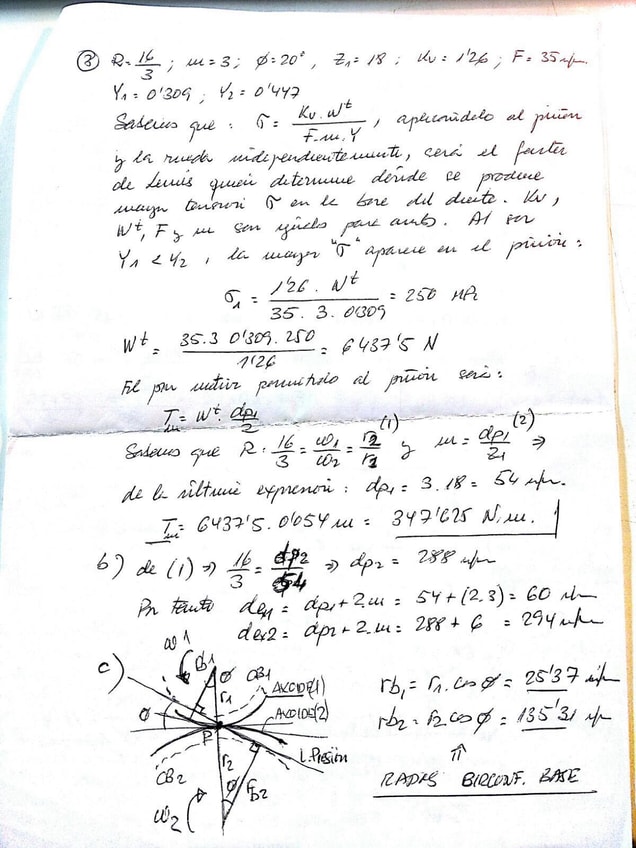 3 R=16/3 ; m=3 ; ϕ=20° , Z1=18 ; Kv=1'26 ; F=35 m/m.
Y1=0'309 ; Y2=0'447
Sabemos que : σ = Kv.Wt / F.m.Y , aplicándolo al piñón
y la rueda independientemente, será el factor
de Lewis quien determine dónde se produce
mayor tensión σ en la base del diente. Kv,
Wt, F y m son iguales para ambos. Al ser
Y1 < Y2 , la mayor "σ" aparece en el piñón :
σ1 = 1'26 . Wt / 35. 3. 0'309 = 250 MPa
Wt = 35.3 0'309. 250 / 1'26 = 6437'5 N
El par motor permitido al piñón será :
Tm = Wt . dp1/2
Sabemos que R = 16/3 = ω1/ω2 = r2/r1 (1) y m = dp1/Z1 (2) ⇒
de la última expresión : dp1 = 3.18 = 54 m/m.
Tm = 6437'5. 0'054 m = 347'625 N.m.
b) de (1) ⇒ 16/3 = dp2/54 ⇒ dp2 = 288 m/m
Por tanto dex1 = dp1+2.m = 54+(2.3) = 60 m/m
dex2 = dp2+2.m = 288+6 = 294 m/m
c)
ω1 rb1 ϕ CB1
r1 AXOIDE(1)
ϕ AXOIDE(2)
P
L. Presión
CB2 r2
ϕ rb2
ω2
rb1 = r1. cos ϕ = 25'37 m/m
rb2 = r2 cos ϕ = 135'31 m/m
⇑
RADIOS CIRCUNF. BASE